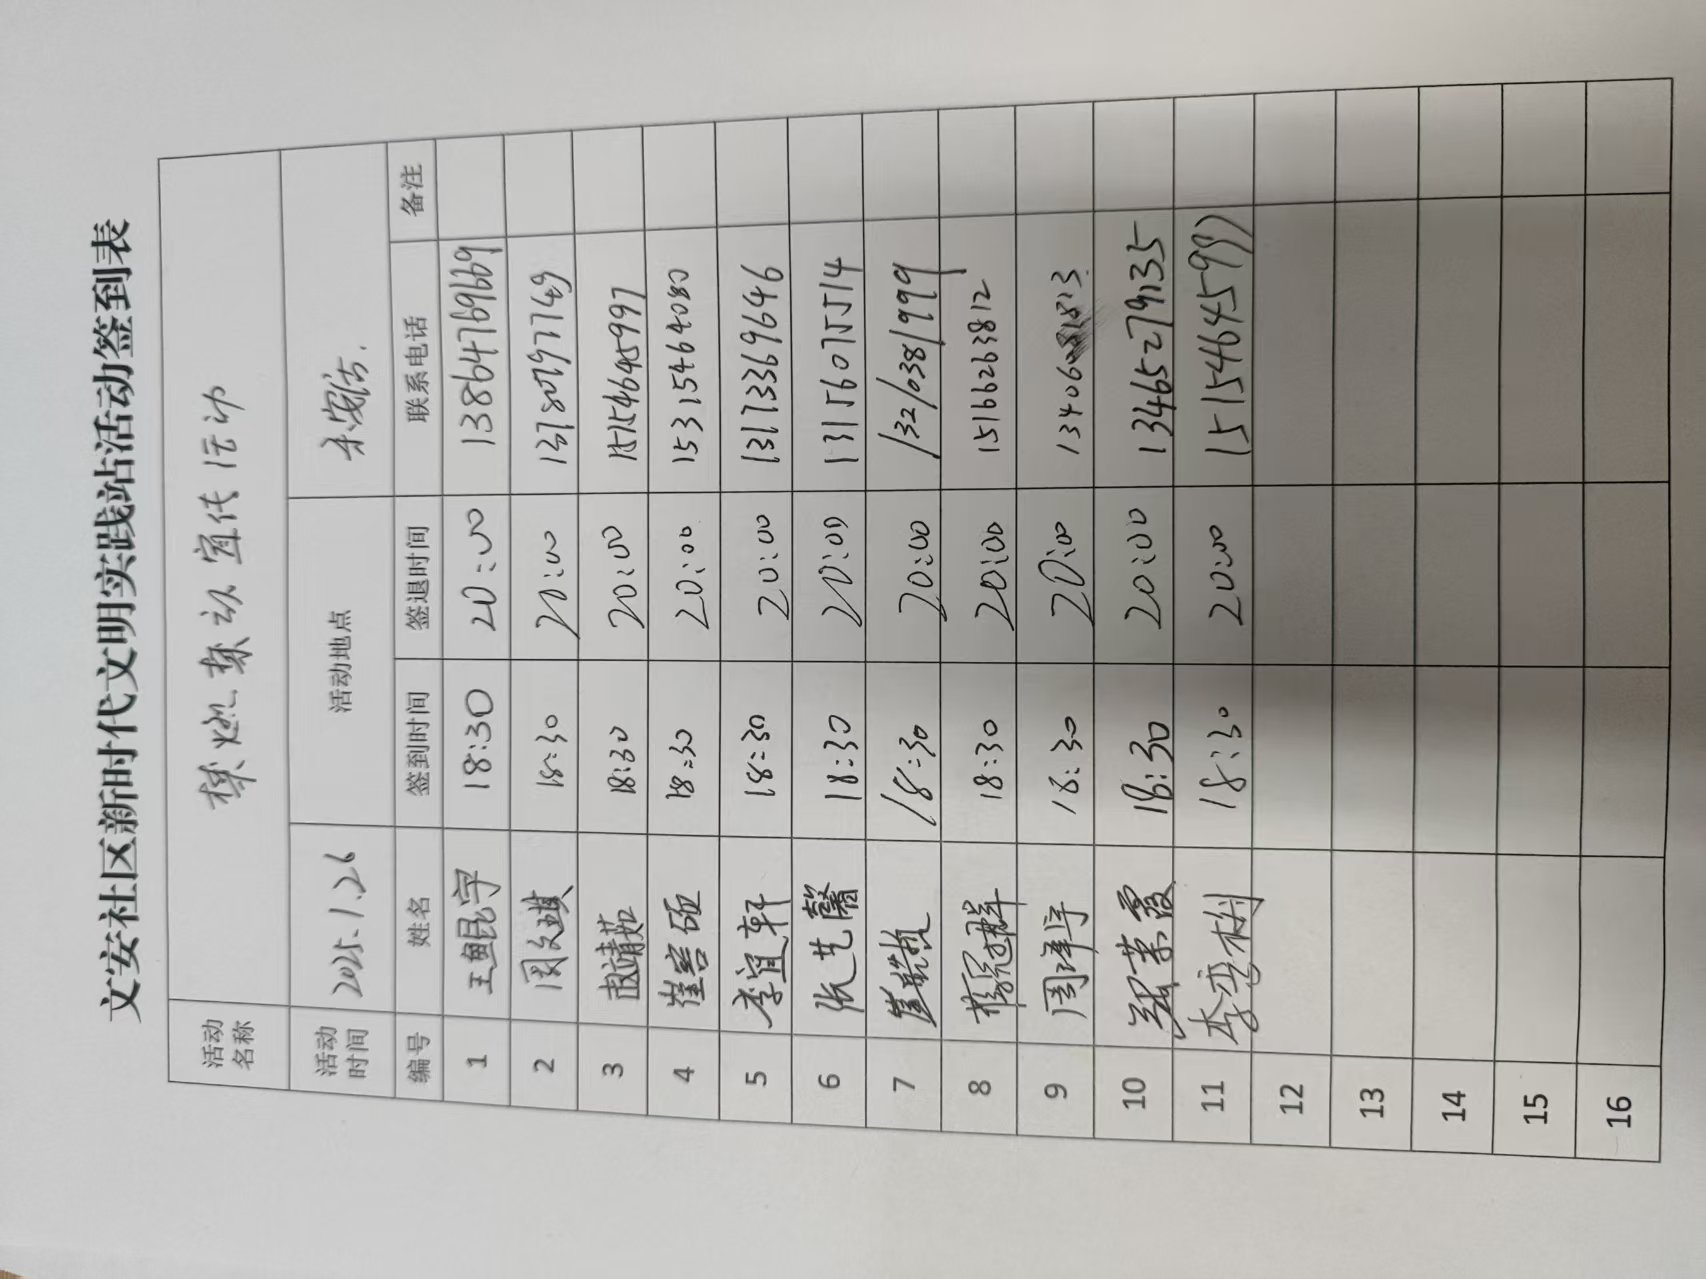 文安社区新时代文明实践站活动签到表
活动名称 禁燃禁动宣传活动
活动时间 2025.1.26 活动地点 文安街.
编号 姓名 签到时间 签退时间 联系电话 备注
1 王鲲宇 18:30 20:00 13864769669
2 周文琪 18:30 20:00 13780797749
3 赵靖茹 18:30 20:00 15154645997
4 崔容硕 18:30 20:00 15315464080
5 李宜轩 18:30 20:00 13173369646
6 张艺馨 18:30 20:00 13156075514
7 18:30 20:00 13210381999
8 18:30 20:00 15166263812
9 周洋宇 18:30 20:00
10 18:30 20:00 13465279135
11 18:30 20:00 15154645997
12
13
14
15
16